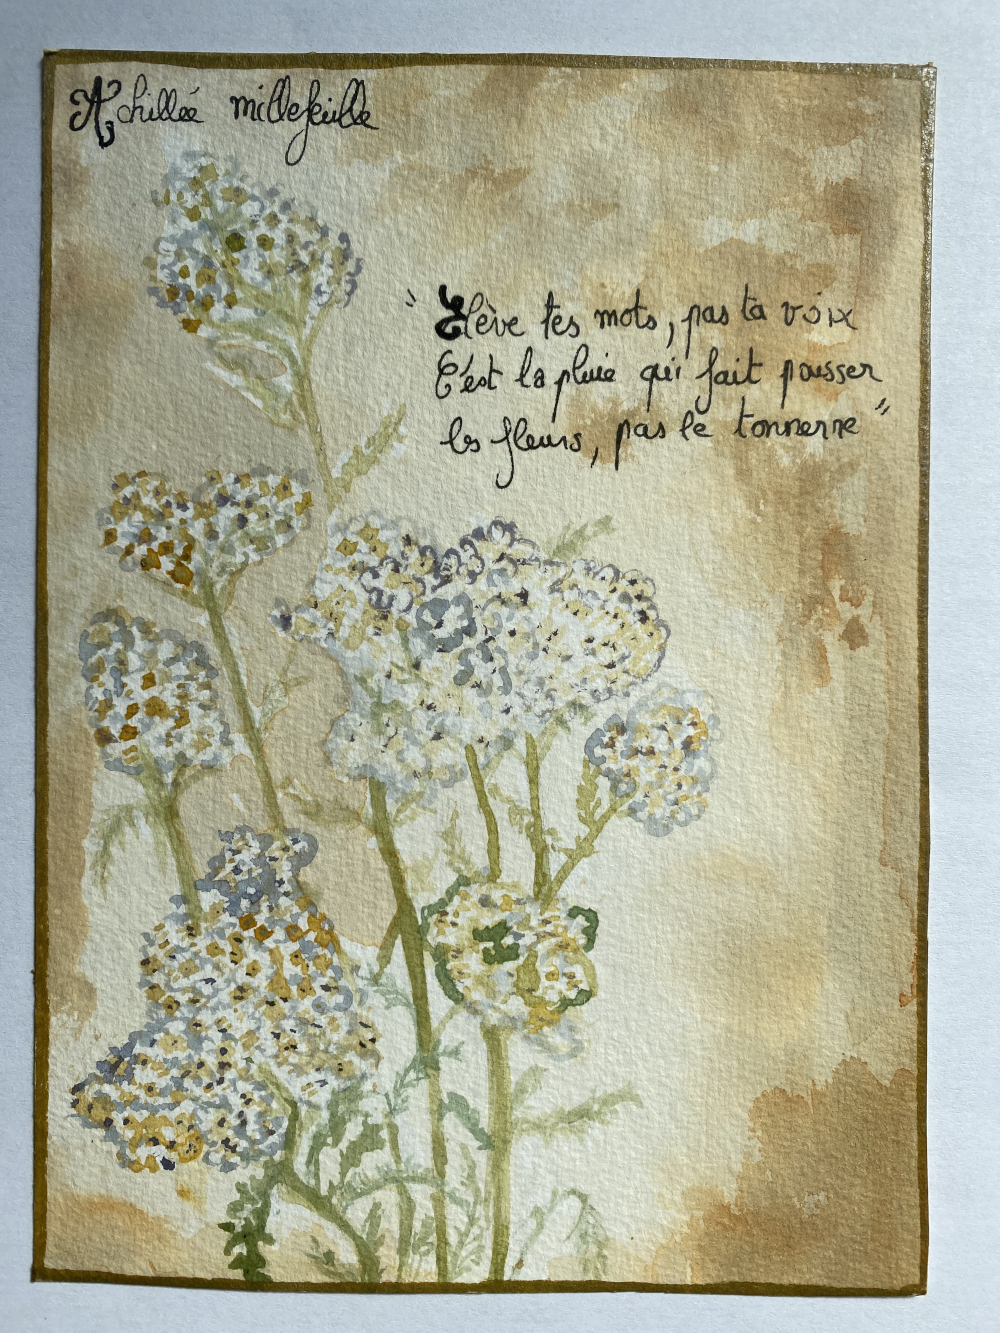 Achillée millefeuille
" Elève tes mots, pas ta voix
C'est la pluie qui fait pousser
les fleurs, pas le tonnerre "